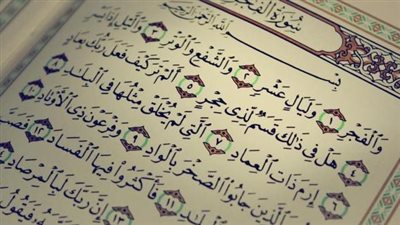 سُورَةُ الفَجْرِ
بِسْمِ اللَّهِ الرَّحْمَٰنِ الرَّحِيمِ
وَالْفَجْرِ ١ وَلَيَالٍ عَشْرٍ ٢ وَالشَّفْعِ وَالْوَتْرِ ٣ وَاللَّيْلِ إِذَا يَسْرِ
٤ هَلْ فِي ذَٰلِكَ قَسَمٌ لِّذِي حِجْرٍ ٥ أَلَمْ تَرَ كَيْفَ فَعَلَ رَبُّكَ بِعَادٍ
٦ إِرَمَ ذَاتِ الْعِمَادِ ٧ الَّتِي لَمْ يُخْلَقْ مِثْلُهَا فِي الْبِلَادِ ٨
الَّذِينَ جَابُوا الصَّخْرَ بِالْوَادِ ٩ وَفِرْعَوْنَ ذِي الْأَوْتَادِ ١٠
الْبِلَادِ ١١ فَأَكْثَرُوا فِيهَا الْفَسَادَ ١٢ فَصَبَّ
١٣ إِنَّ رَبَّكَ لَبِالْمِرْصَادِ
فَيَقُولُ